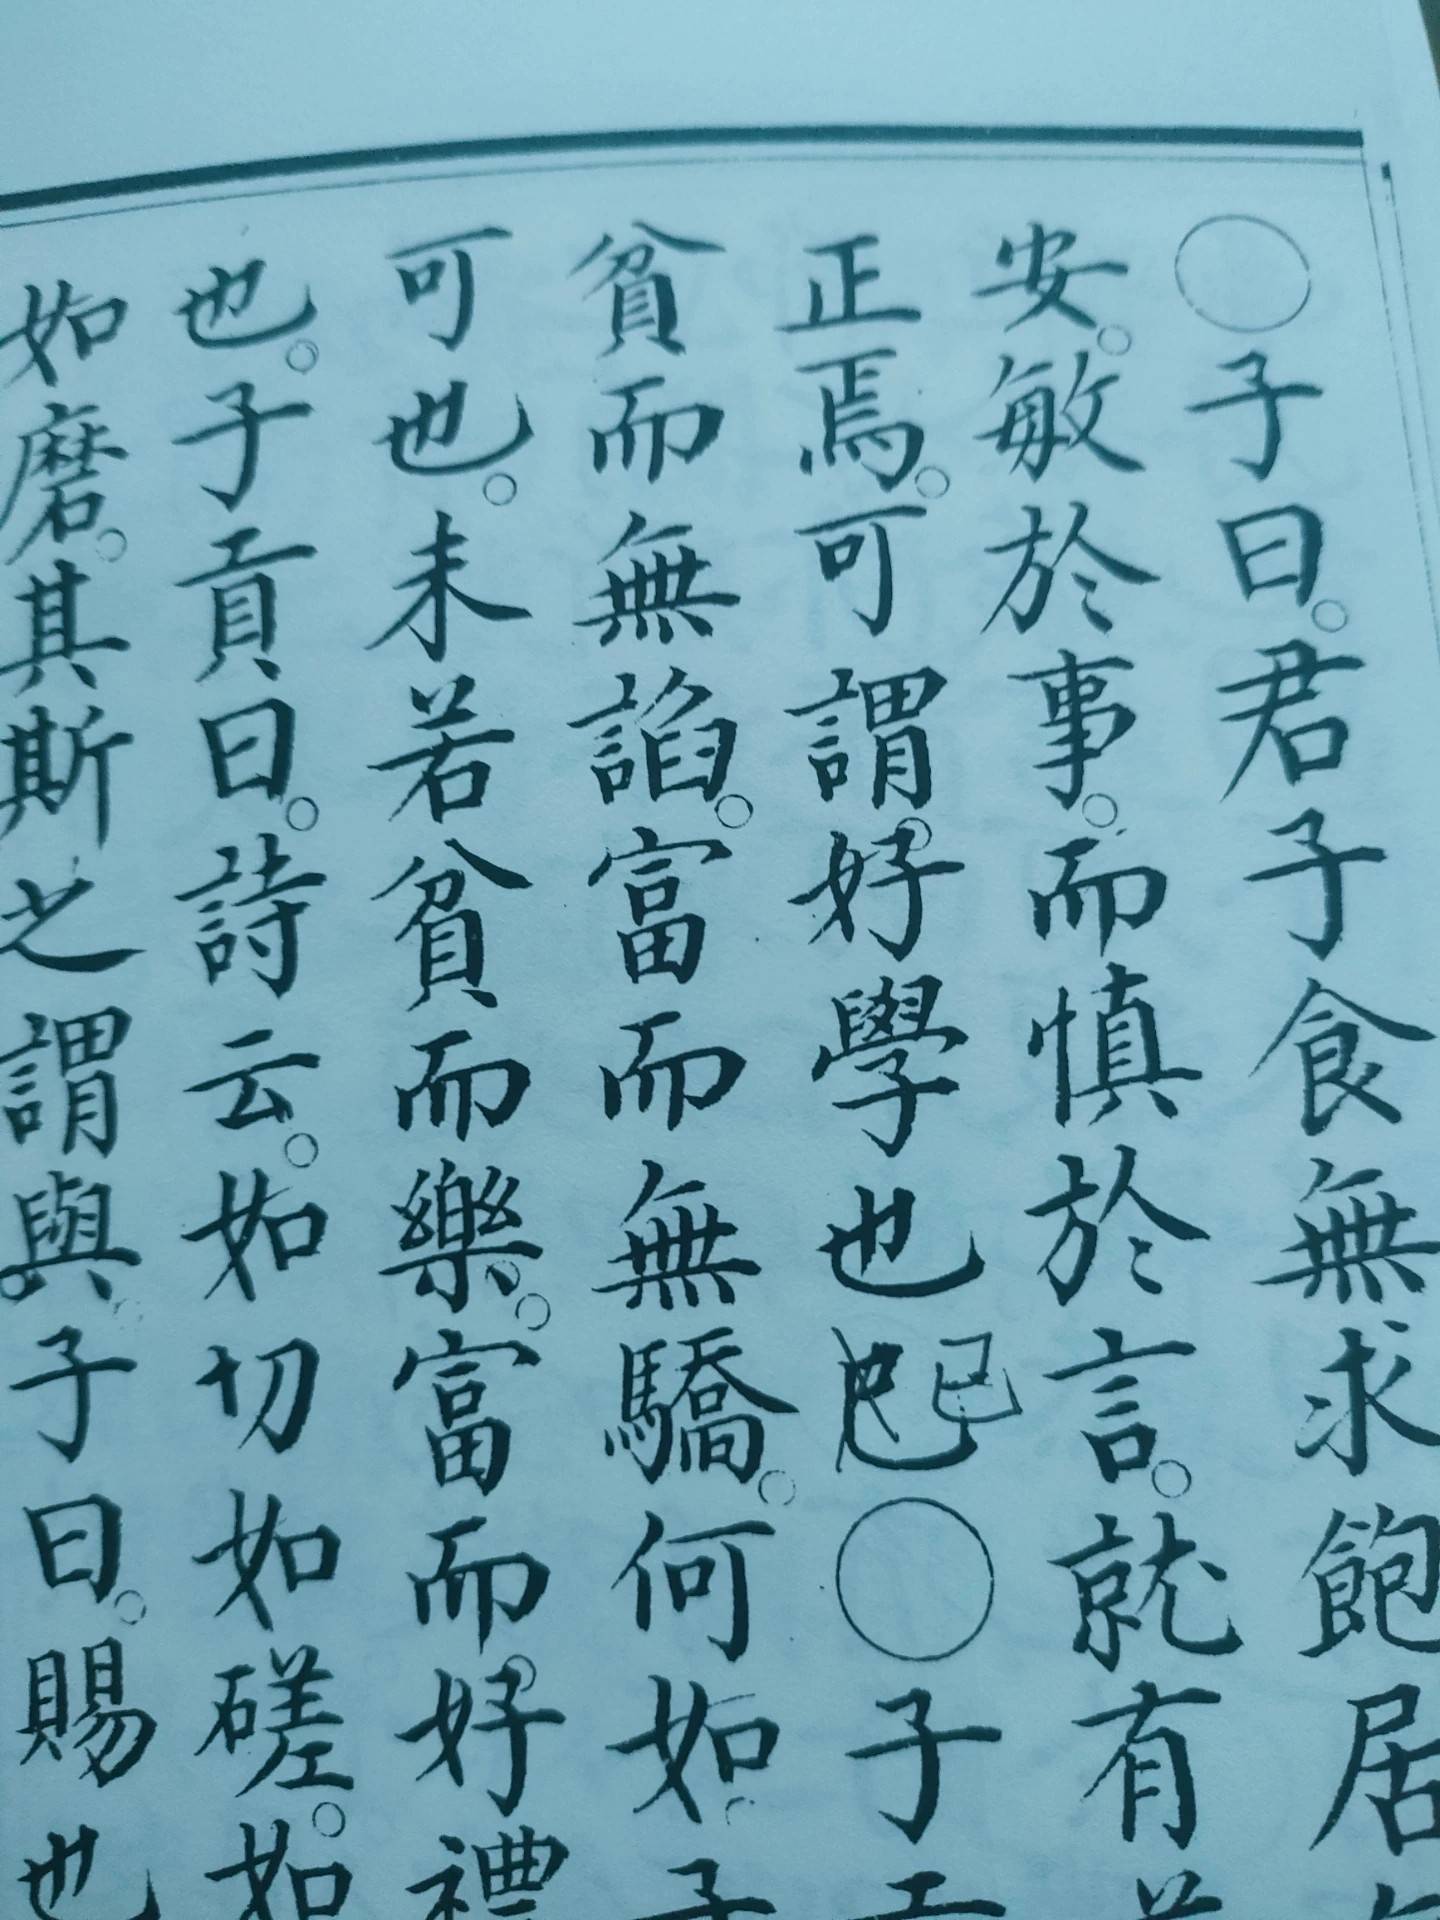 ○子曰。君子食無求飽居
安。敏於事。而慎於言。就有
正焉。可謂好學也已○子
貧而無諂。富而無驕。何如。子
可也。未若貧而樂。富而好禮
也。子貢曰。詩云。如切如磋。如
如磨。其斯之謂與。子曰。賜也